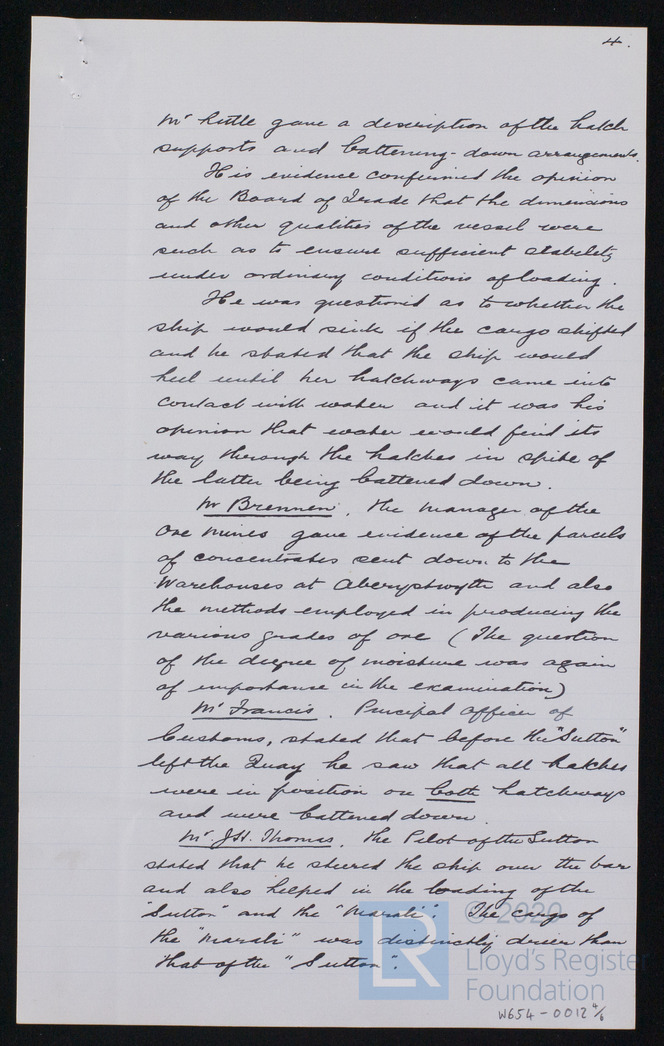 4.
Mr Ruttle gave a description of the hatch
supports and battening-down arrangements.
His evidence confirmed the opinion
of the Board of Trade that the dimensions
and other qualities of the vessel were
such as to ensure sufficient stability
under ordinary conditions of loading.
He was questioned as to whether the
ship would sink if the cargo shifted
and he stated that the ship would
heel until her hatchways came into
contact with water and it was his
opinion that water would find its
way through the hatches in spite of
the latter being battened down.
Mr Brennen, the manager of the
ore mines gave evidence of the parcels
of concentrates sent down to the
Warehouses at Aberystwyth and also
the methods employed in producing the
various grades of ore (The question
of the degree of moisture was again
of importanse in the examination)
Mr Francis. Principal officer of
Customs, stated that before the "Sutton"
left the Quay he saw that all hatches
were in position on both hatchways
and were battened down.
Mr. J.H. Thomas, the Pilot of the Sutton
stated that he steered the ship over the bar
and also helped in the loading of the
"Sutton" and the "Marali". The cargo of
the "Marali" was distinctly drier than
that of the "Sutton".
© 2020
LR
Lloyd's Register
Foundation
W654-0012 4/6